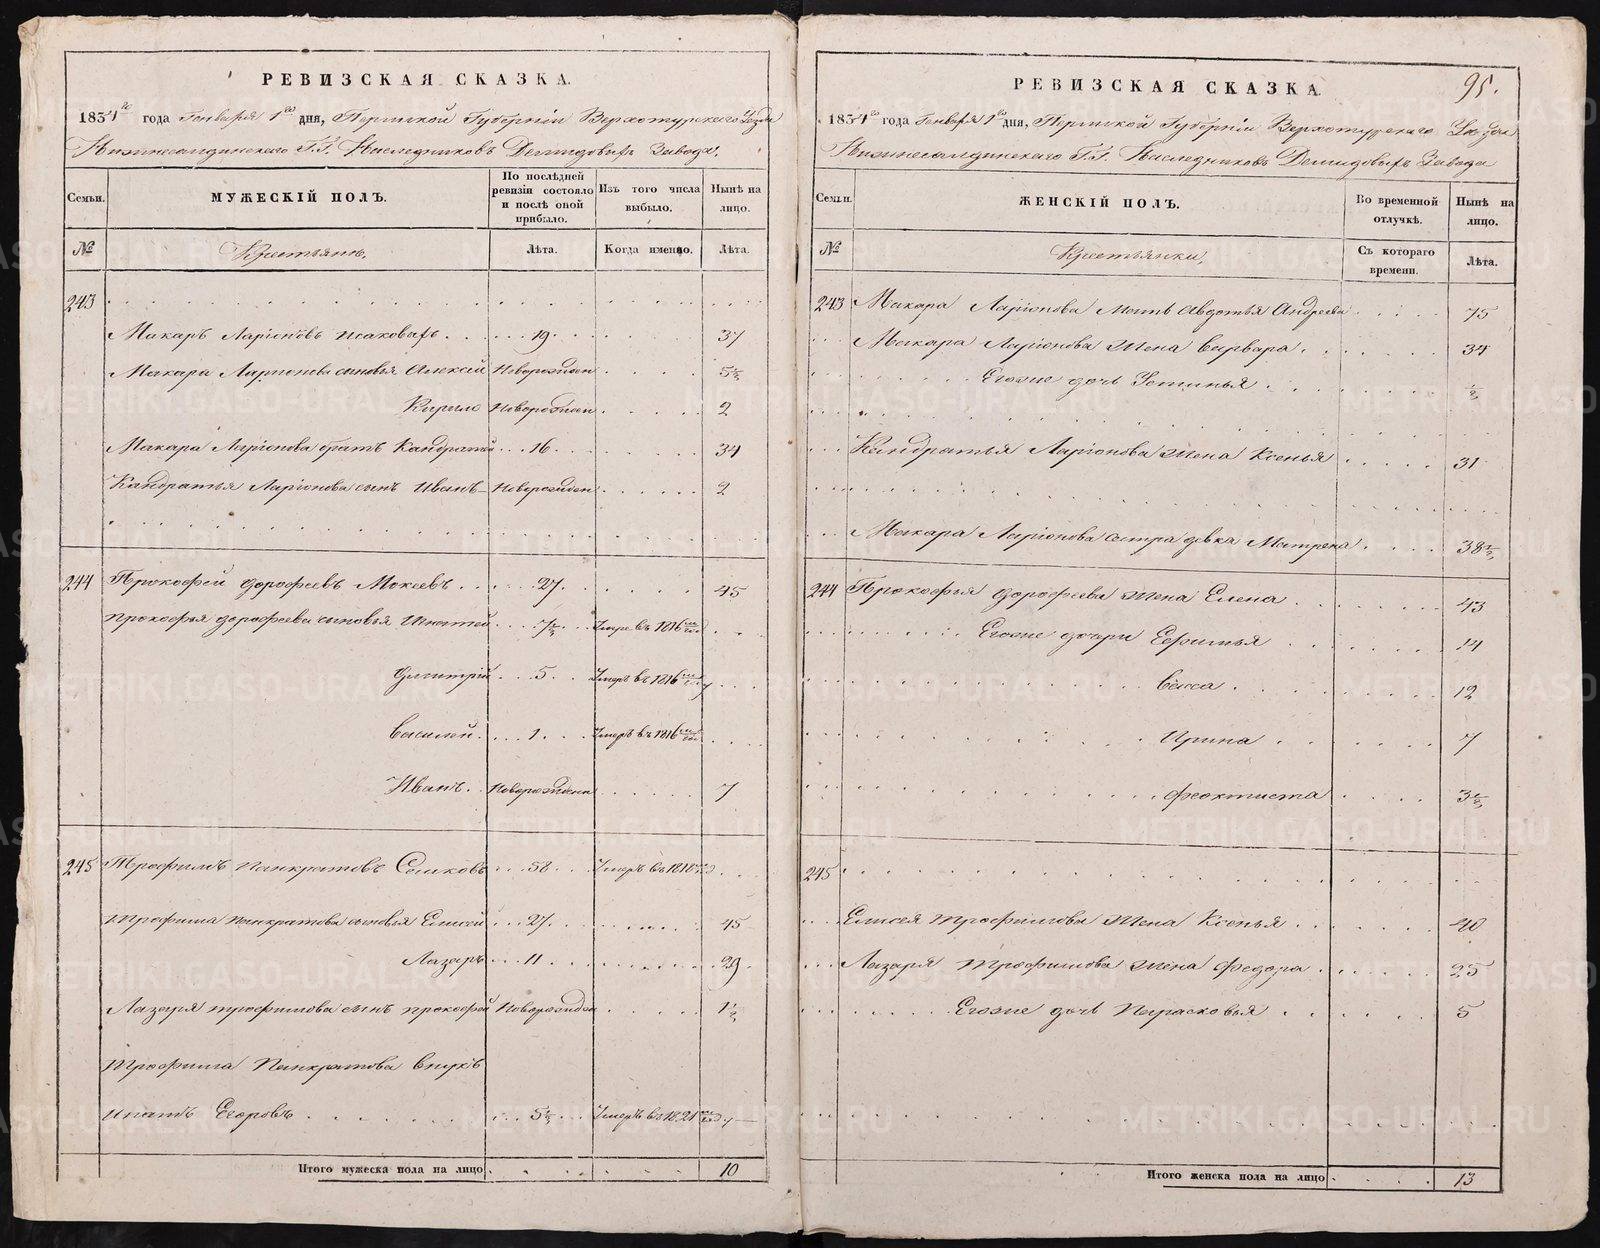 РЕВИЗСКАЯ СКАЗКА.
1834го года Генваря 1го дня, Пермской Губерніи Верхотурскаго Уезда
Нижнесалдинскаго Г.Г. Наследниковъ Демидовыхъ Завода.
Семьи.
МУЖЕСКІЙ ПОЛЪ.
По послѣдней ревизіи состояло и послѣ оной прибыло.
Изъ того числа выбыло.
Нынѣ на лицо.
№
Крестьянъ.
Лѣта.
Когда именно.
Лѣта.
243
Макаръ Ларіоновъ Исаковыхъ 19 37
Макара Ларіонова сыновья Алексѣй Новорожден 5½
Кирило Новорожден 2
Макара Ларіонова братъ Кандратей 16 34
Кандратья Ларіонова сынъ Иванъ Новорожден 2
244 Прокофей Дорофеевъ Мокеевъ 27 45
Прокофья Дорофеева сыновья Игнатей 7½ Умре въ 1816 мъ годѣ
Дмитрій 5 Умеръ въ 1816 мъ году
Василей 1 Умеръ въ 1816 мъ годѣ
Иванъ Новорожденъ 7
245 Трофимъ Панкратовъ 58 Умеръ въ 1818 мъ го
Трофима Панкратова сыновья Елисей 27 45
Лазарь 11 29
Лазаря Трофимова сынъ Прокофей Новорожден 1½
Трофима Панкратова внукъ
Ипатъ Егоровъ 5½ Умеръ въ 1821 мъ году
Итого мужеска пола на лицо 10
95.
РЕВИЗСКАЯ СКАЗКА.
1834го года Генваря 1го дня, Пермской Губерніи Верхотурскаго Уезда
Нижнесалдинскаго Г.Г. Наследниковъ Демидовыхъ Завода
Семьи.
ЖЕНСКІЙ ПОЛЪ.
Во временной отлучкѣ.
Нынѣ на лицо.
№
Крестьянки,
Съ котораго времени.
Лѣта.
243 Макара Ларіонова Мать Авдотья Андреева 75
Макара Ларіонова Жена Варвара 34
Егоже дочь Устинья ½
Кандратья Ларіонова Жена Ксенья 31
Макара Ларіонова сестра девка Матрена 38½
244 Прокофья Дорофеева Жена Елена 43
Егоже дочери Ефимья 14
Васса 12
Ирина 7
Феоктиста 3½
245
Елисея Трофимова Жена Ксенья 40
Лазаря Трофимова Жена Федора 25
Егоже дочь Парасковья 5
Итого женска пола на лицо 13
METRIKI.GASO-URAL.RU